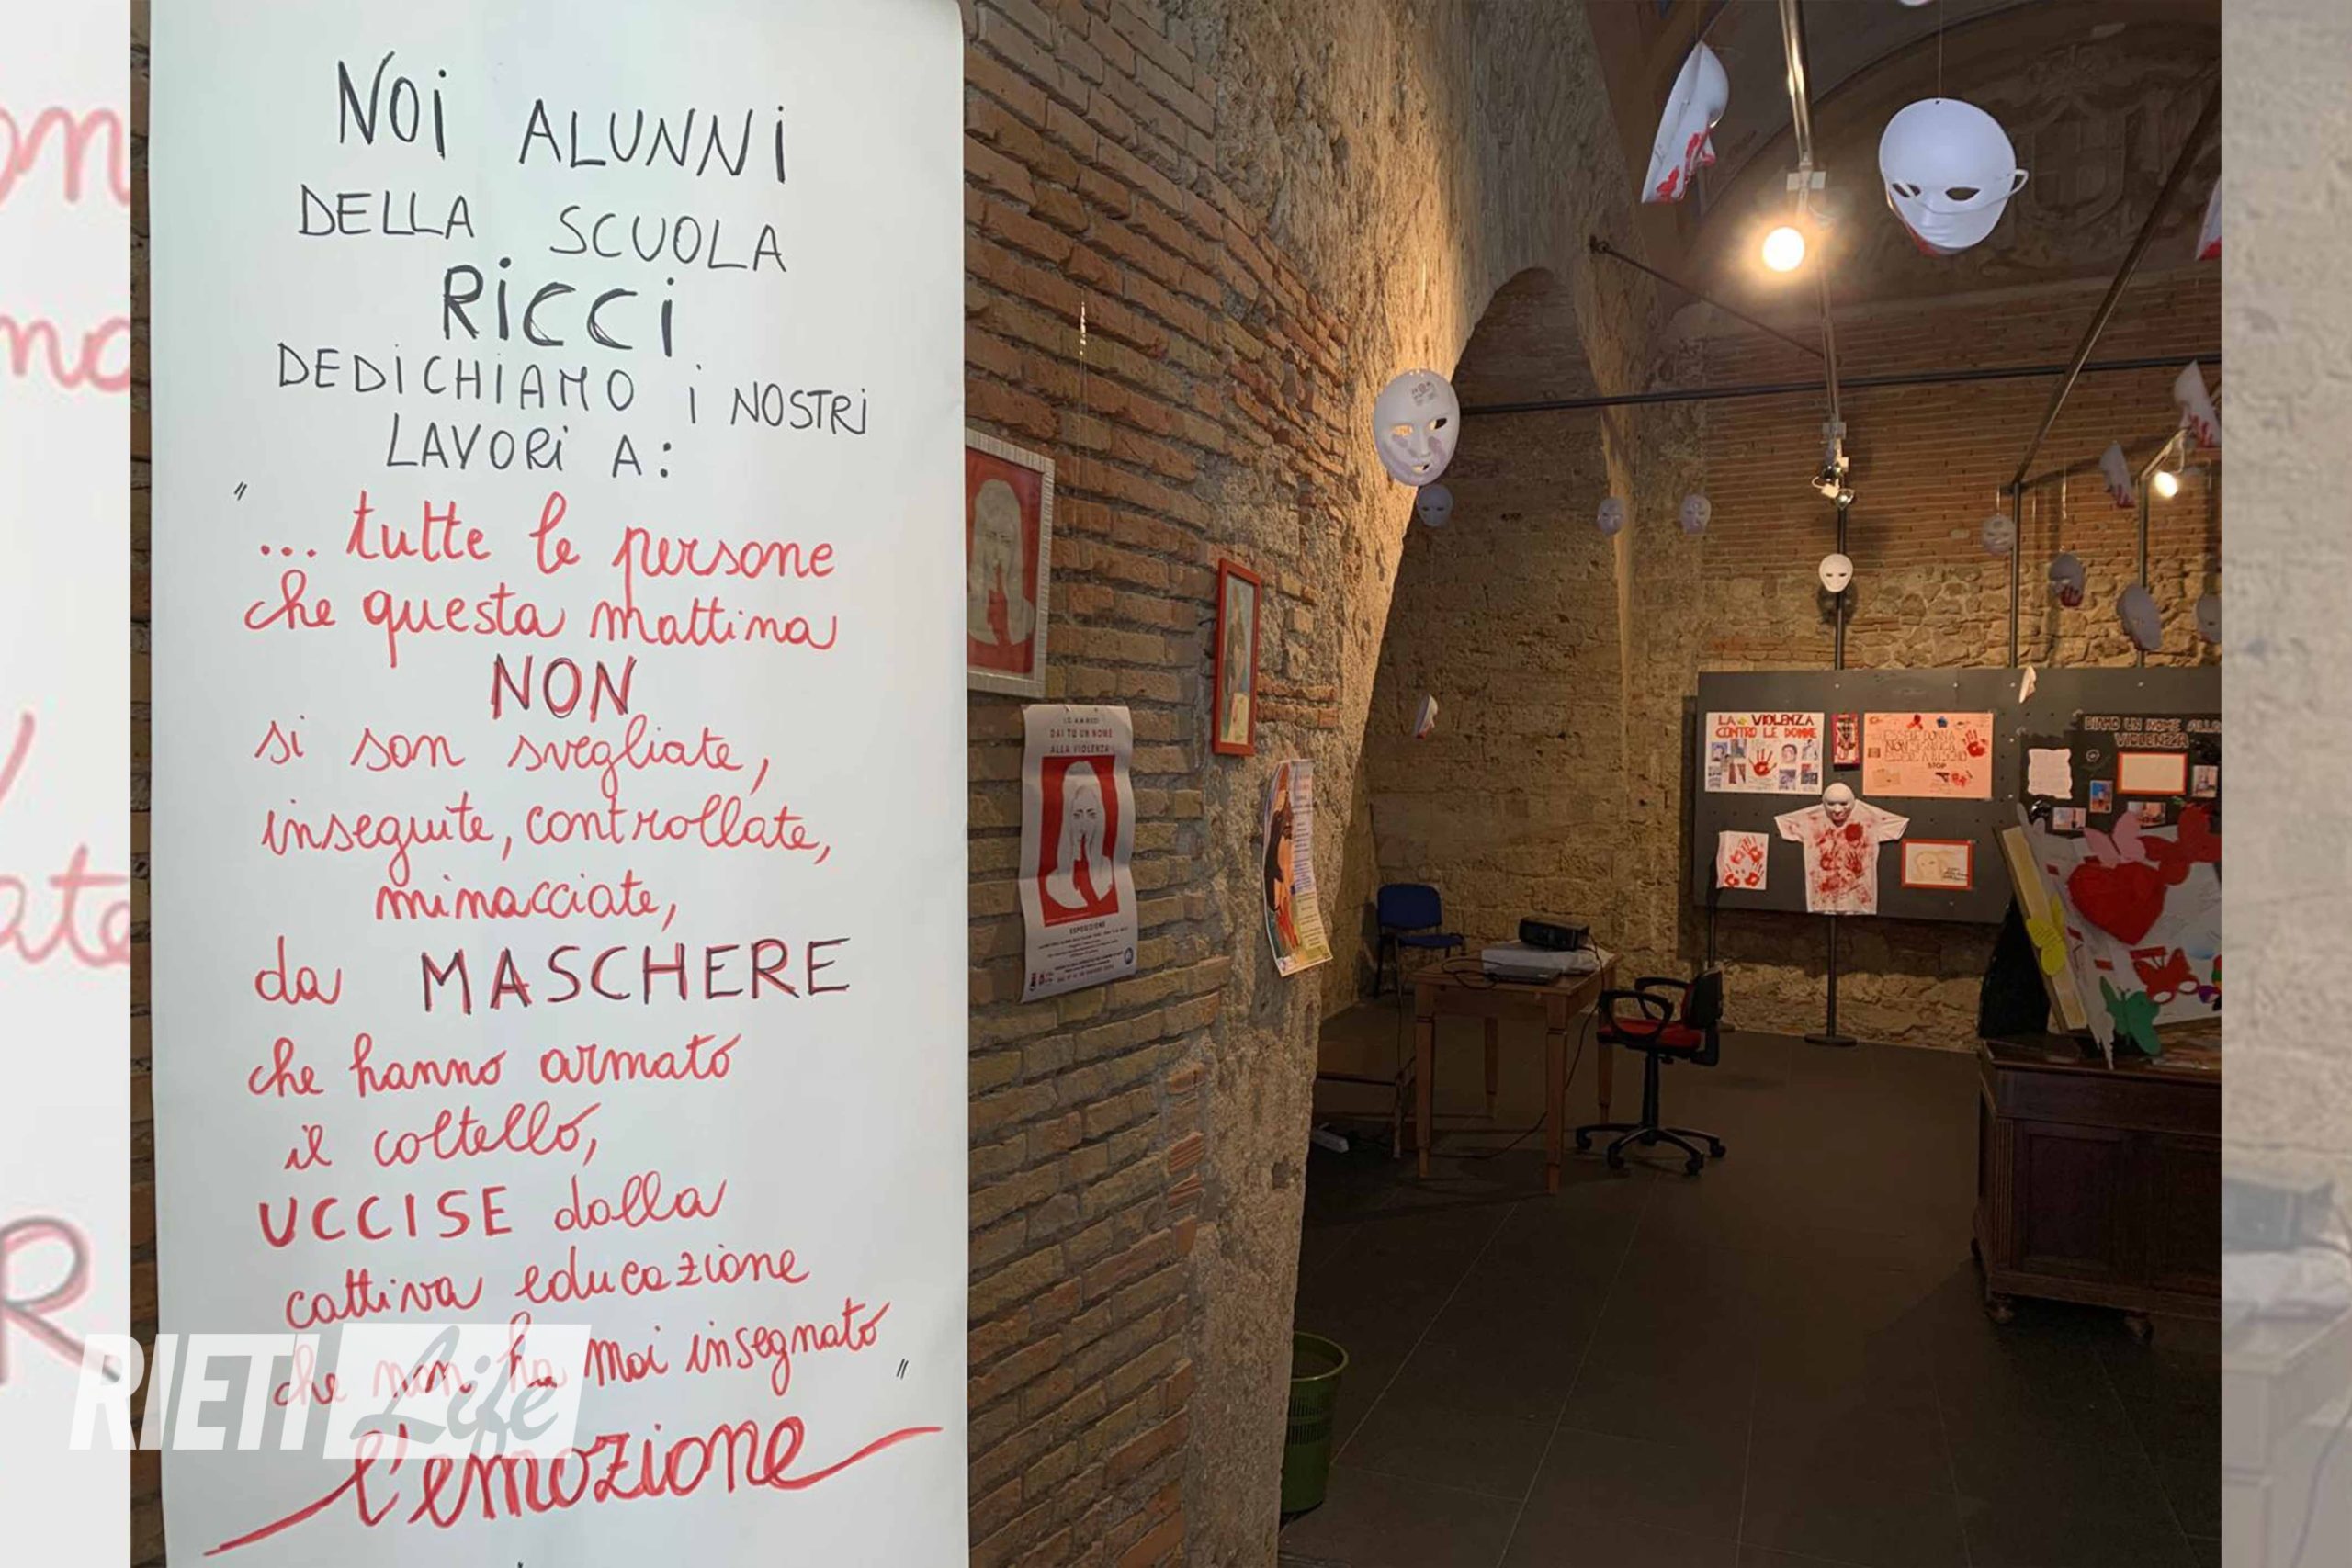 NOI ALUNNI
DELLA SCUOLA
RICCI
DEDICHIAMO I NOSTRI
LAVORI A:
"
... tutte le persone
che questa mattina
NON
si son svegliate,
inseguite, controllate,
minacciate,
da MASCHERE
che hanno armato
il coltello,
UCCISE dalla
cattiva educazione
che non ha mai insegnato
"
l'emozione
RIETI Life
DAI TU UN NOME
ALLA VIOLENZA
ESPOSIZIONE
LA VIOLENZA
CONTRO LE DONNE
STOP
DIAMO UN NOME ALLA
VIOLENZA